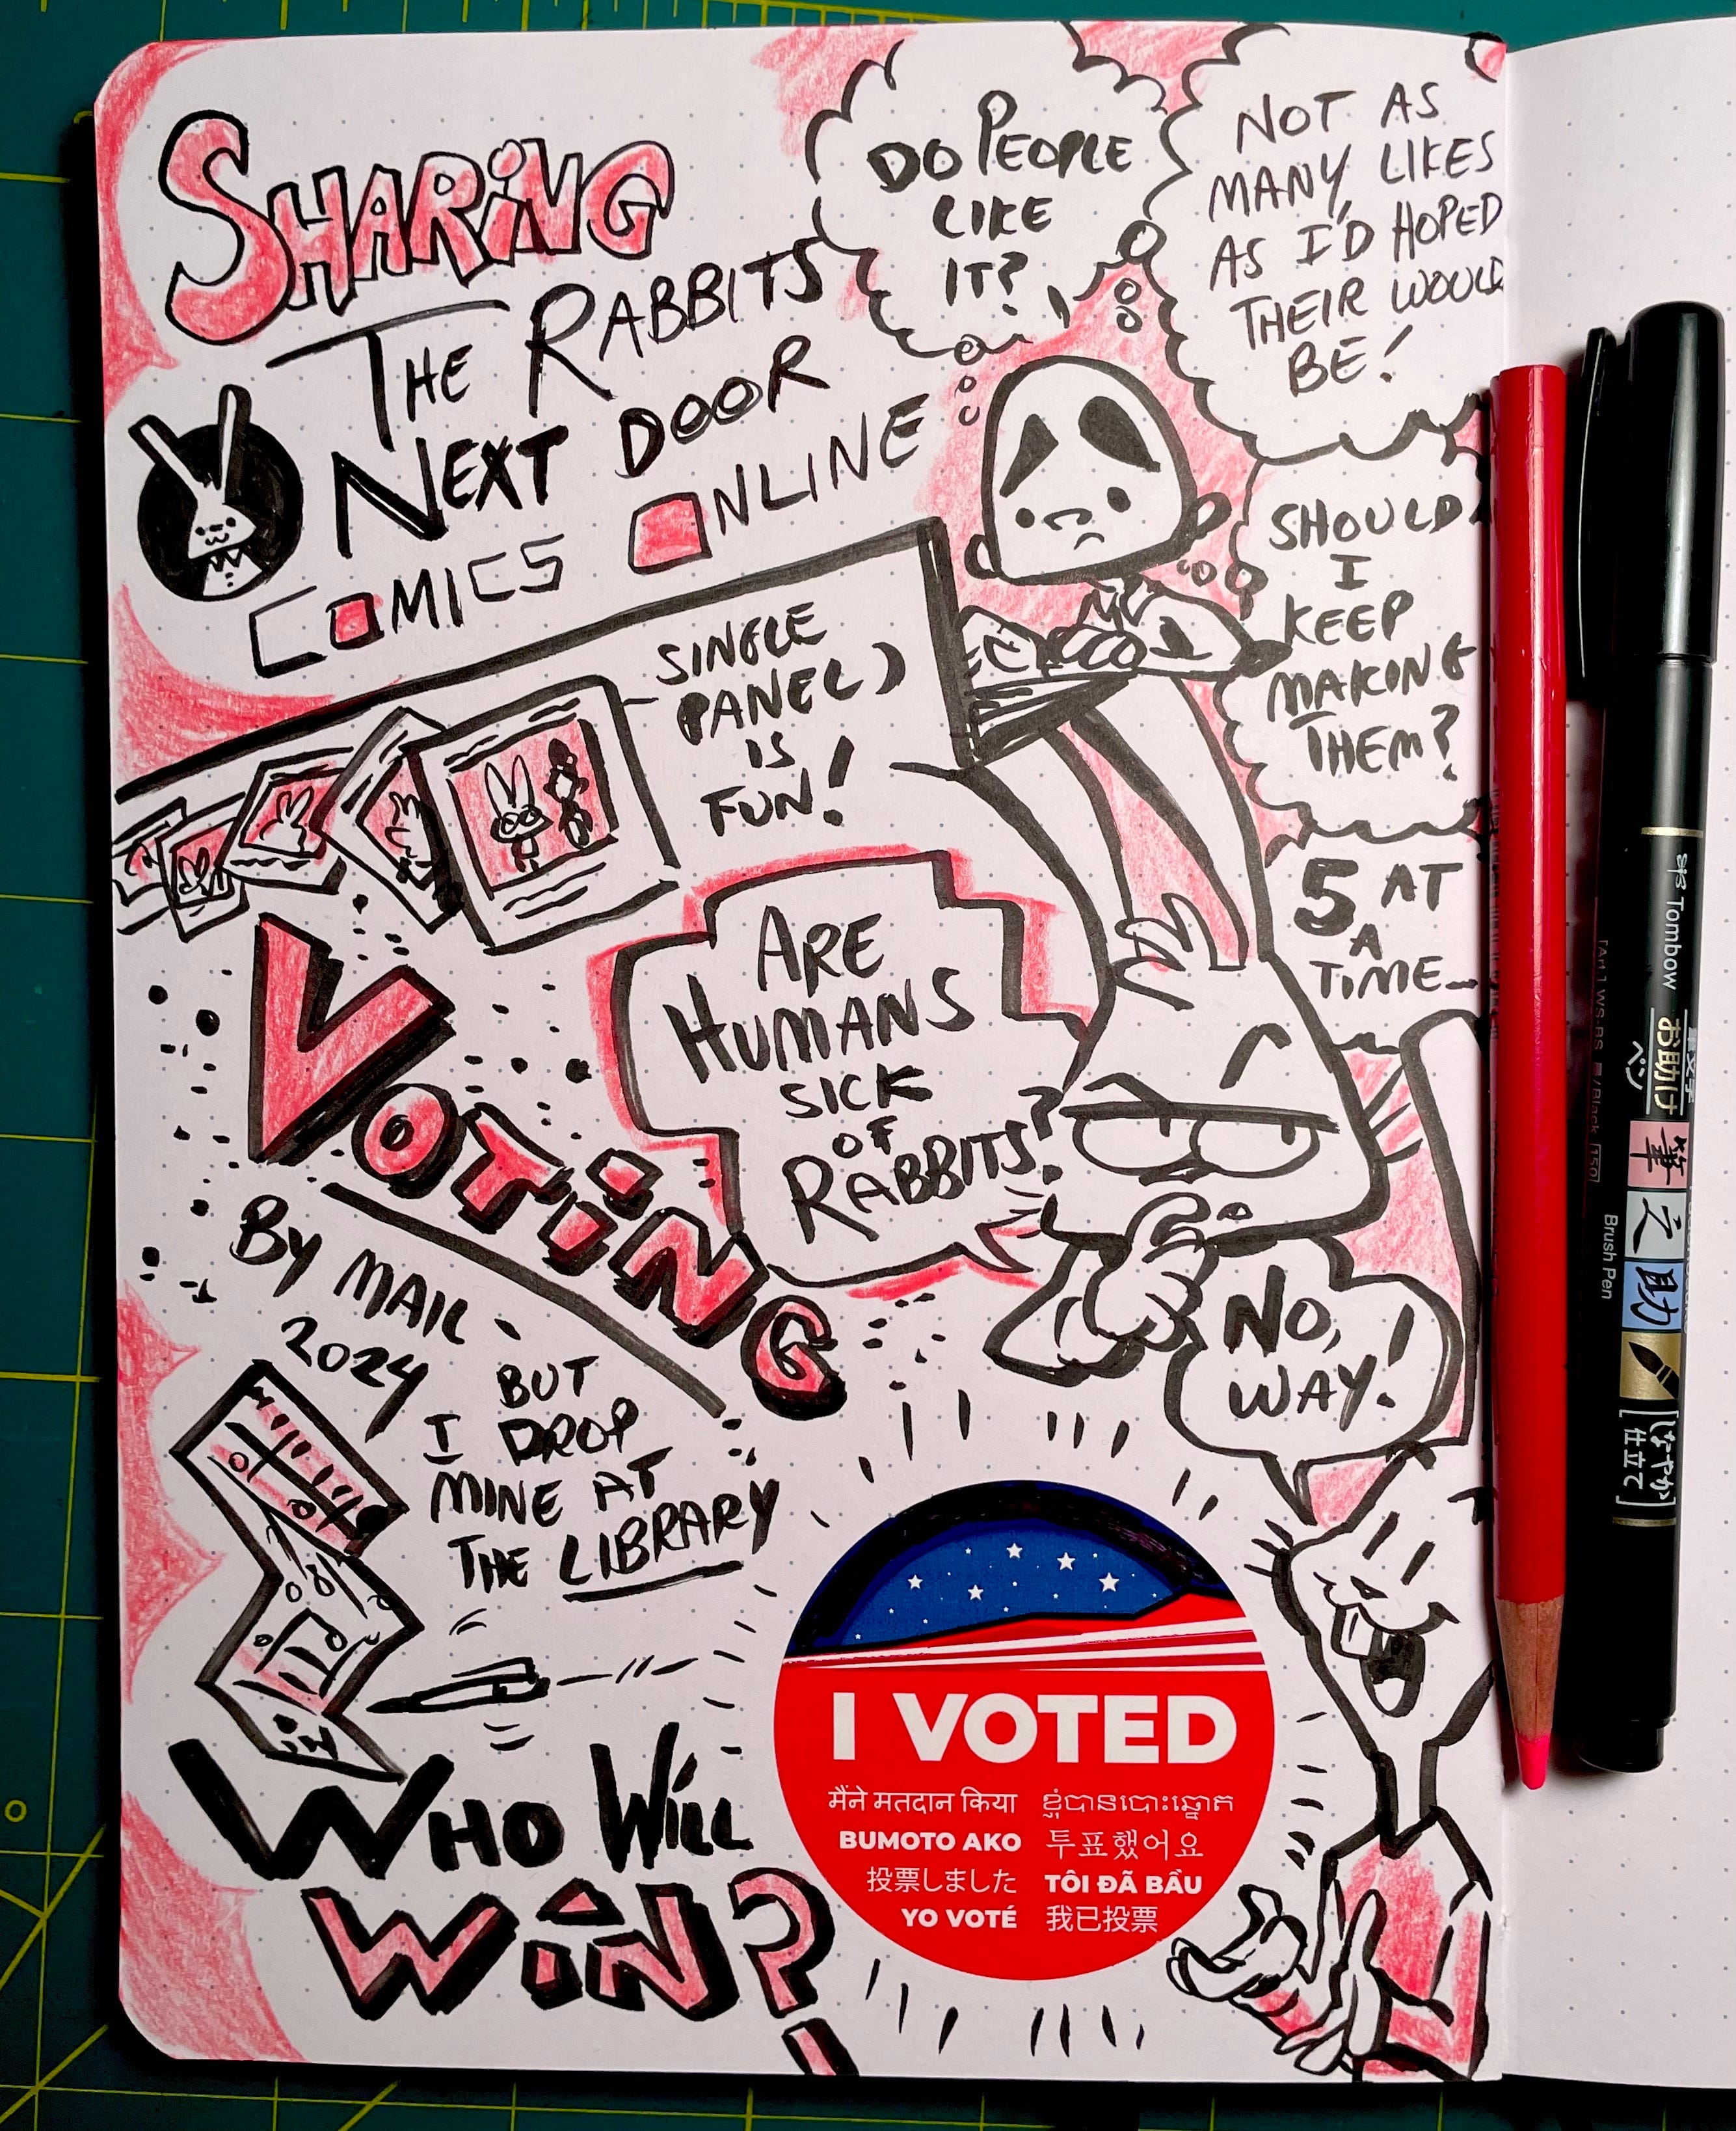 SHARING
THE RABBITS
NEXT DOOR
COMICS ONLINE
DO PEOPLE
LIKE
IT?
NOT AS
MANY LIKES
AS I'D HOPED
THEIR WOULD
BE!
SHOULD
I
KEEP
MAKING
THEM?
5 AT
A
TIME
SINGLE
PANEL
IS
FUN!
ARE
HUMANS
SICK
OF
RABBITS?
NO,
WAY!
VOTING
BY MAIL
2024
BUT
I DROP
MINE AT
THE LIBRARY
WHO WILL
WIN?
I VOTED
मैंने मतदान किया
ខ្ញុំបានបោះឆ្នោត
BUMOTO AKO
투표했어요
投票しました
TÔI ĐÃ BẦU
YO VOTÉ
我已投票
Tombow
お助け
ペン
筆之助
[しなやか
仕立て]
Brush Pen